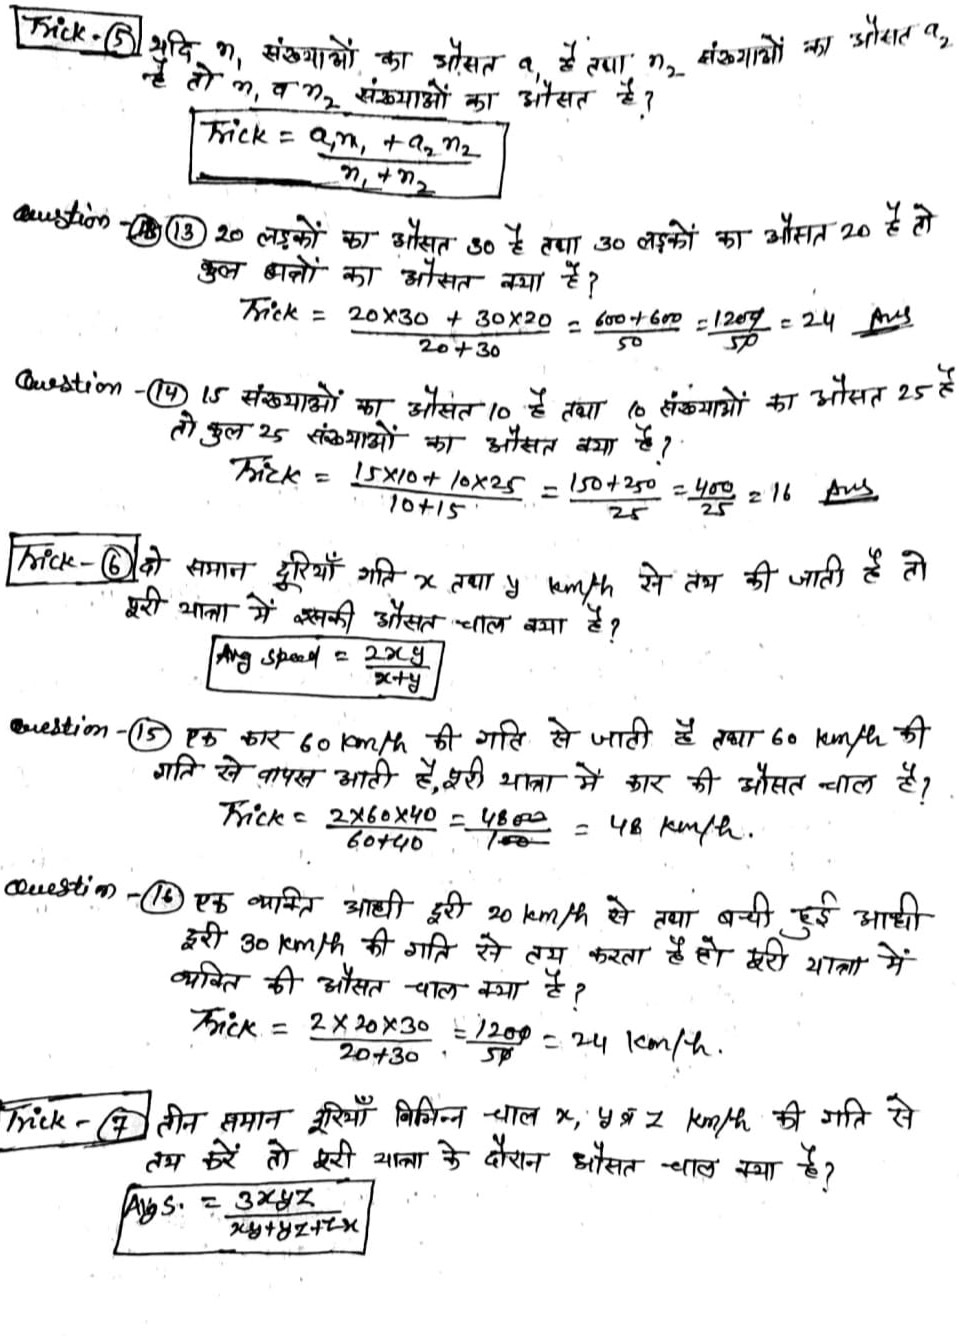 Trick-⑤ यदि n₁ संख्याओं का औसत a₁ है तथा n₂ संख्याओं का औसत a₂
है तो n₁ व n₂ संख्याओं का औसत है?
Trick = (a₁n₁ + a₂n₂)/(n₁+n₂)
Question-⑬ 20 लड़कों का औसत 30 है तथा 30 लड़कों का औसत 20 है तो
कुल का औसत क्या है?
Trick = (20×30 + 30×20)/(20+30) = (600+600)/50 = 1200/50 = 24 Ans
Question-⑭ 15 संख्याओं का औसत 10 है तथा 10 संख्याओं का औसत 25 है
तो कुल 25 संख्याओं का औसत क्या है?
Trick = (15×10+10×25)/(10+15) = (150+250)/25 = 400/25 = 16 Ans
Trick-⑥ दो समान दूरियाँ गति x तथा y km/h से तय की जाती है तो
पूरी यात्रा में इसकी औसत चाल क्या है?
Avg speed = 2xy/(x+y)
Question-⑮ एक कार 60 km/h की गति से जाती है तथा 60 km/h की
गति से वापस आती है, पूरी यात्रा में कार की औसत चाल है?
Trick = (2×60×40)/(60+40) = 4800/100 = 48 km/h.
Question-⑯ एक व्यक्ति आधी दूरी 20 km/h से तथा बची हुई आधी
दूरी 30 km/h की गति से तय करता है तो पूरी यात्रा में
व्यक्ति की औसत चाल क्या है?
Trick = (2×20×30)/(20+30) = 1200/50 = 24 km/h.
Trick-⑦ तीन समान दूरियाँ विभिन्न चाल x, y व z km/h की गति से
तय करें तो पूरी यात्रा के दौरान औसत चाल क्या है?
Avg S. = 3xyz/(xy+yz+zx)